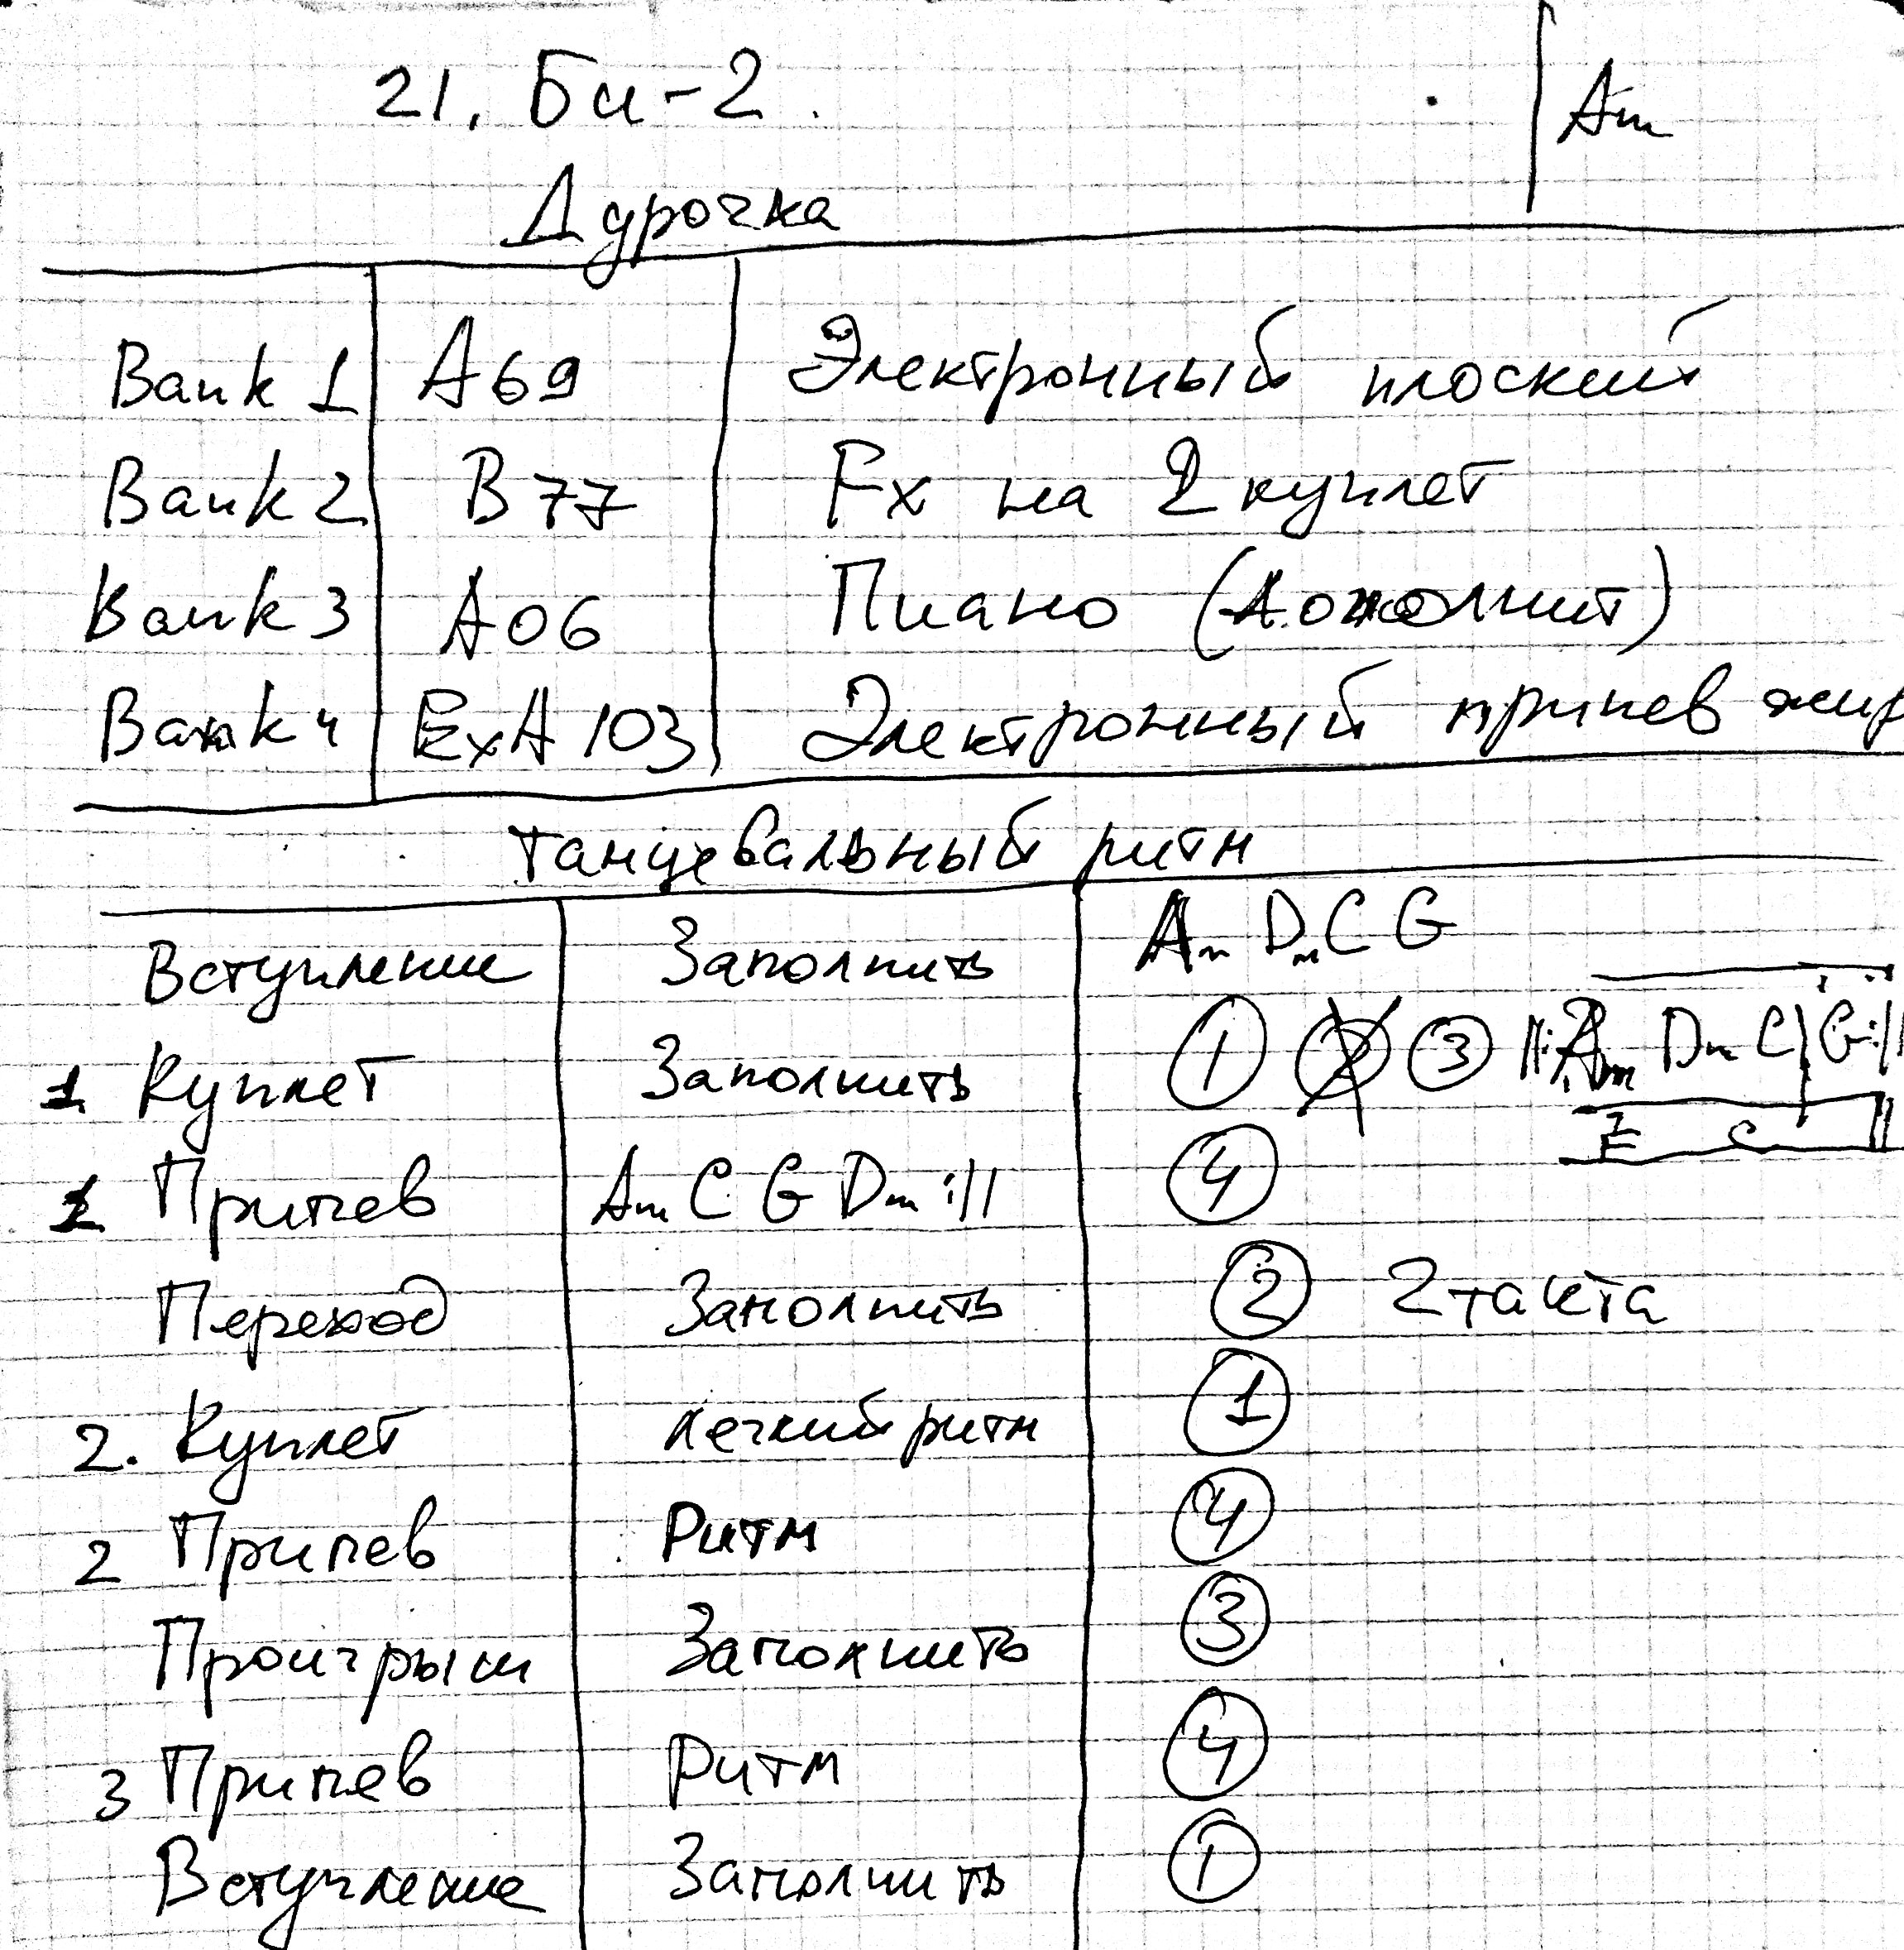 21. Би-2. Am
Дурочка
Bank 1 A69 Электронный плоский
Bank 2 B77 Fx на 2 куплет
Bank 3 A06 Пиано
Bank 4 ExA 103 Электронный припев жир
Танцевальный ритм
Вступление Заполнить Am Dm C G
1 Куплет Заполнить 1 2 3 ||: Am Dm C | G :||
E C ||
1 Припев Am C G Dm :|| 4
Переход Заполнить 2 2 такта
2. Куплет легкий ритм 1
2 Припев Ритм 4
Проигрыш Заполнить 3
3 Припев Ритм 4
Вступление Заполнить 1